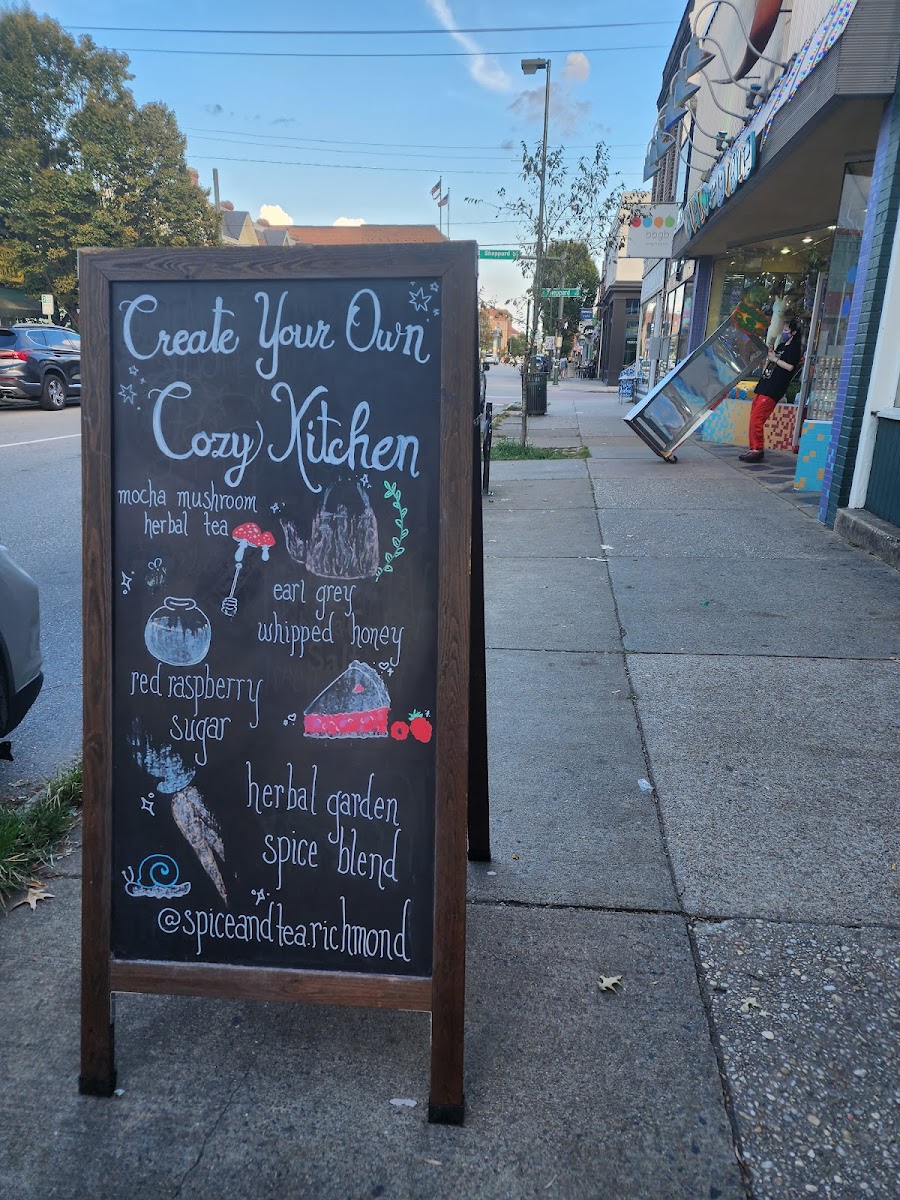 Create Your Own
Cozy Kitchen
mocha mushroom
herbal tea
earl grey
whipped honey
red raspberry
sugar
herbal garden
spice blend
@spiceandtea.richmond
Sheppard